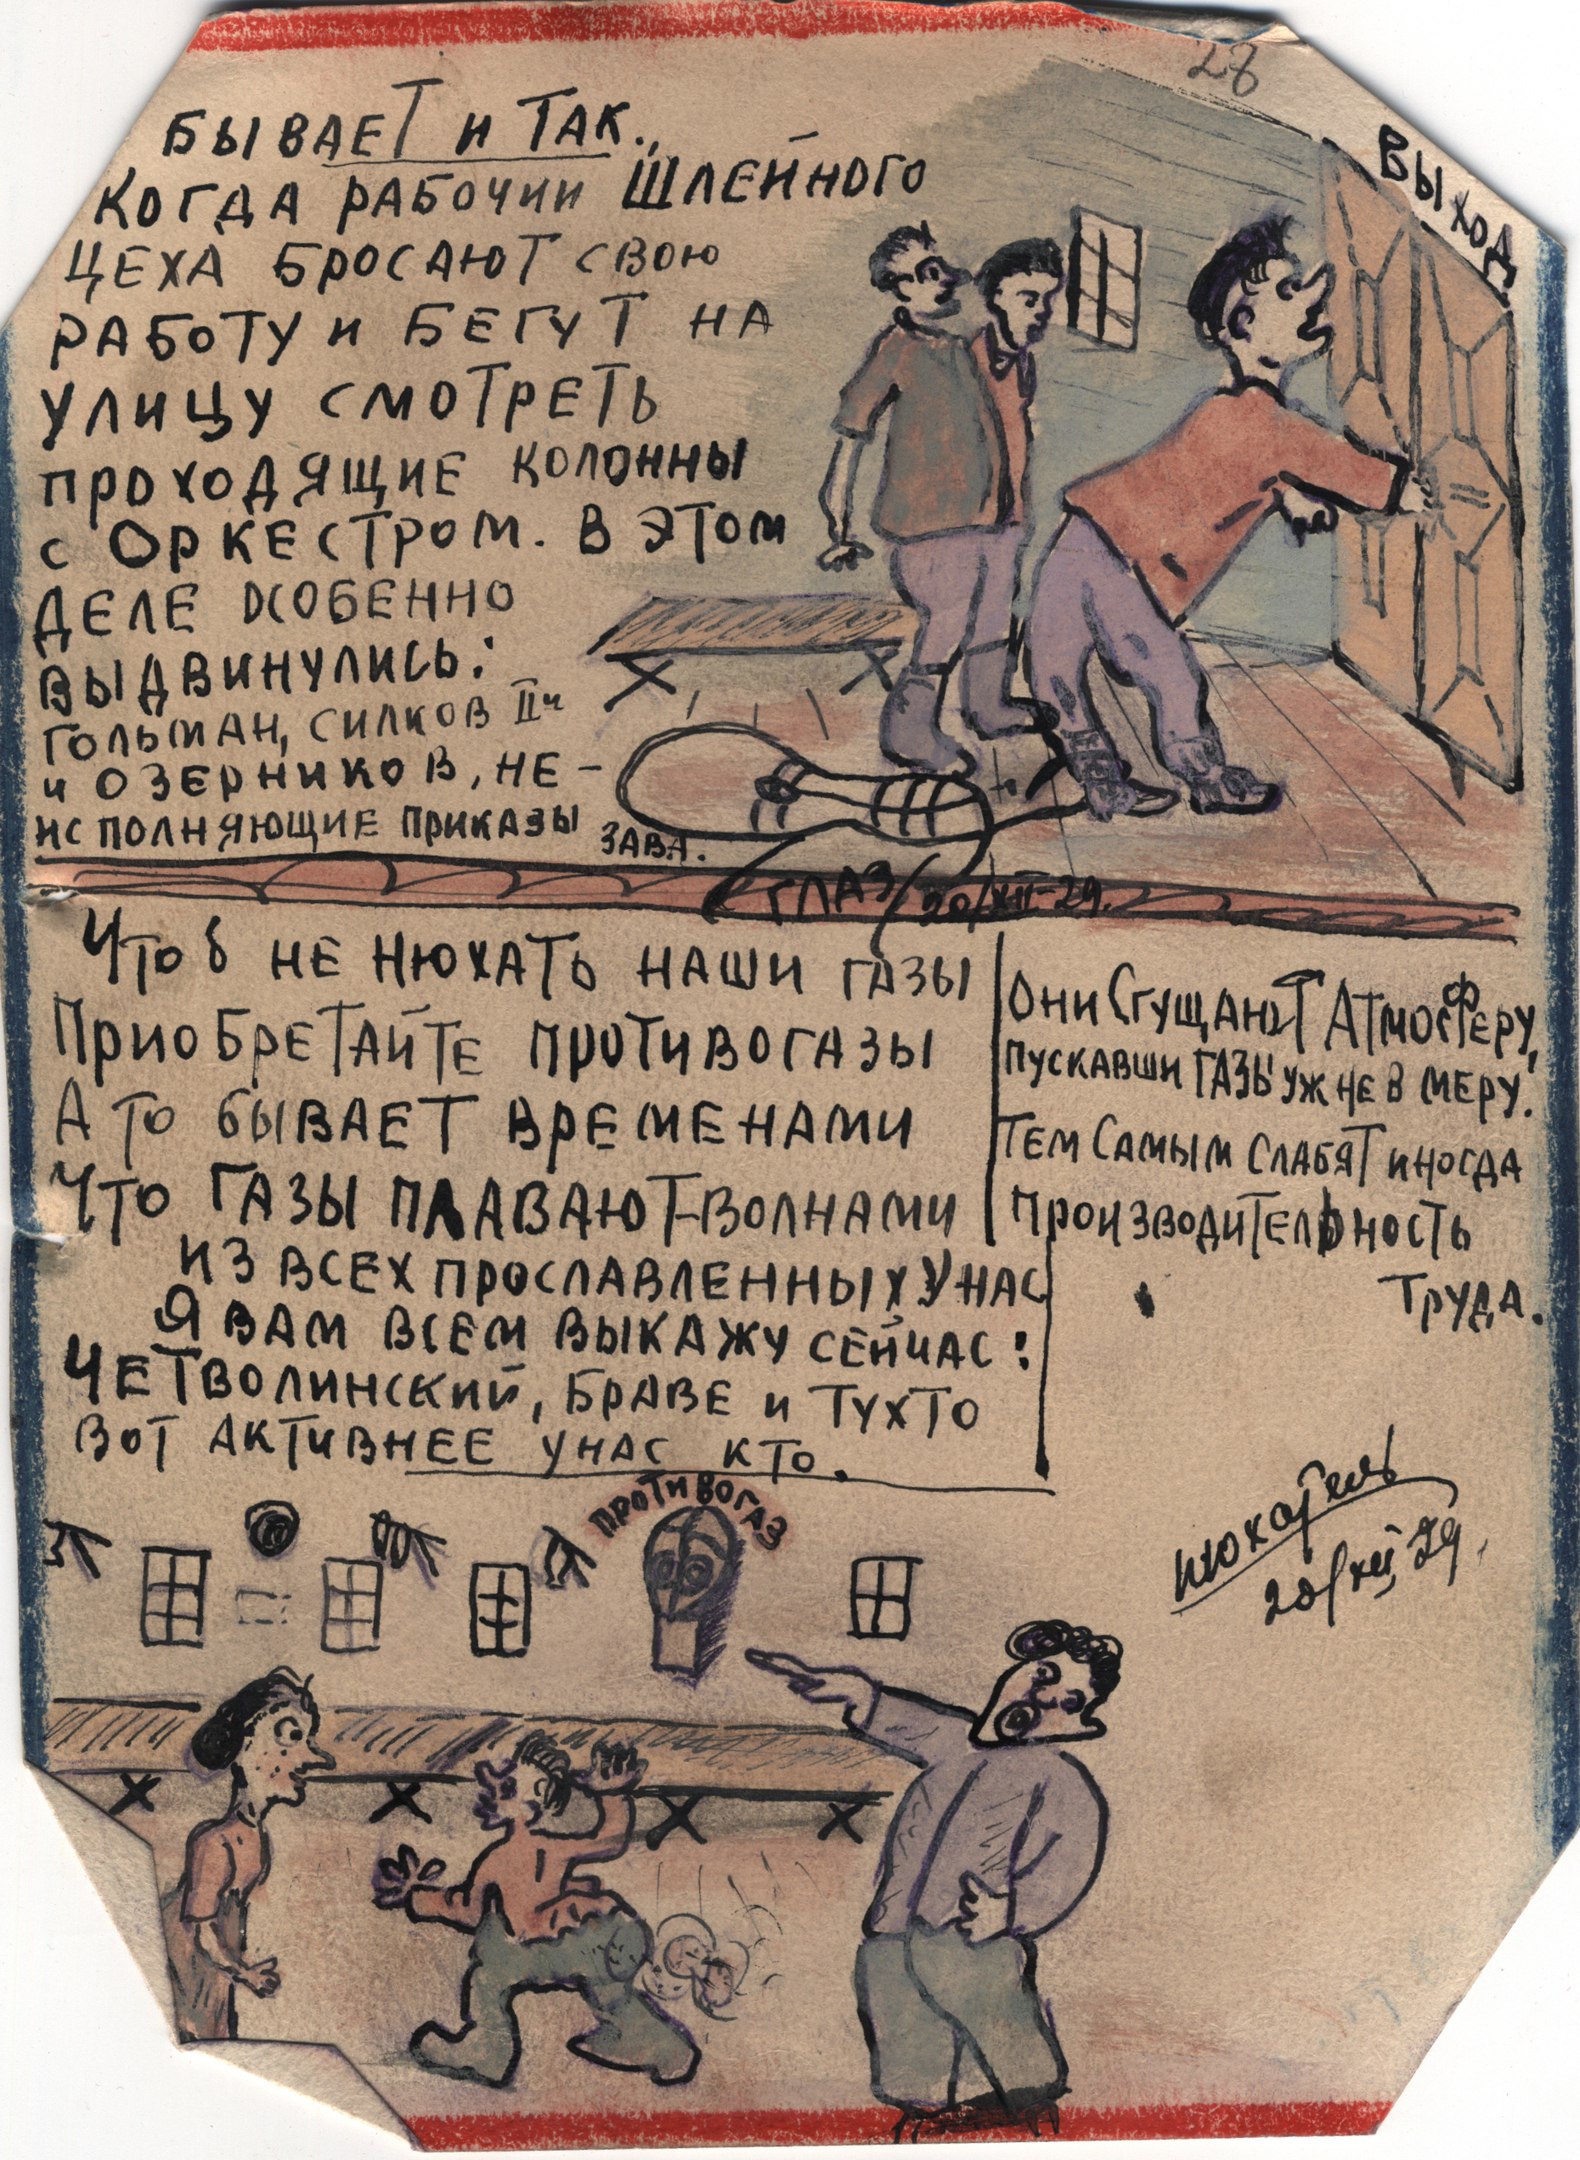 28
БЫВАЕТ И ТАК.,
КОГДА РАБОЧИИ ШЛЕЙНОГО
ЦЕХА БРОСАЮТ СВОЮ
РАБОТУ И БЕГУТ НА
УЛИЦУ СМОТРЕТЬ
ПРОХОДЯЩИЕ КОЛОННЫ
С ОРКЕСТРОМ. В ЭТОМ
ДЕЛЕ ОСОБЕННО
ВЫДВИНУЛИСЬ:
ГОЛЬМАН, СИЛКОВ IIй
И ОЗЕРНИКОВ, НЕ-
ИСПОЛНЯЮЩИЕ ПРИКАЗЫ ЗАВА.
ВЫХОД
ГЛАЗ 20/XII-29.
ЧТОБ НЕ НЮХАТЬ НАШИ ГАЗЫ
ПРИОБРЕТАЙТЕ ПРОТИВОГАЗЫ
А ТО БЫВАЕТ ВРЕМЕНАМИ
ЧТО ГАЗЫ ПЛАВАЮТ-ВОЛНАМИ
ИЗ ВСЕХ ПРОСЛАВЛЕННЫХ У НАС
Я ВАМ ВСЕМ ВЫКАЖУ СЕЙЧАС:
ЧЕТВОЛИНСКИЙ, БРАВЕ И ТУХТО
ВОТ АКТИВНЕЕ У НАС КТО.
ОНИ СГУЩАЮТ АТМОСФЕРУ,
ПУСКАВШИ ГАЗЫ УЖ НЕ В МЕРУ.
ТЕМ САМЫМ СЛАБЯТ ИНОГДА
ПРОИЗВОДИТЕЛЬНОСТЬ
ТРУДА.
Нюхатель
20/XII, 29.
ПРОТИВОГАЗ